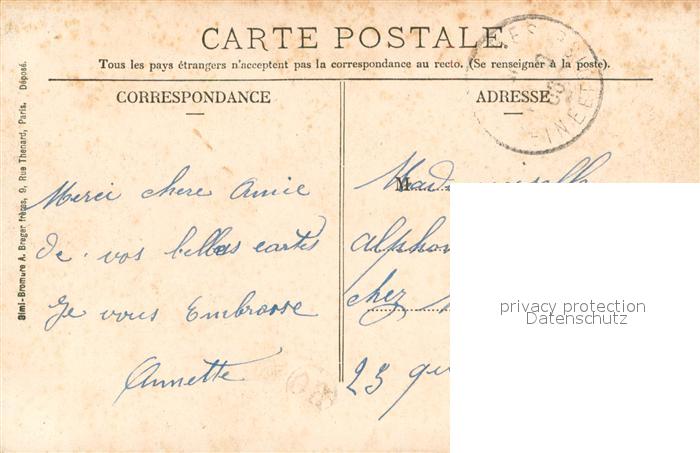 CARTE POSTALE.
Tous les pays étrangers n'acceptent pas la correspondance au recto. (Se renseigner à la poste).
CORRESPONDANCE
Merci chere Amie
de vos belles cartes
Je vous Embrasse
Annette
ADRESSE
M
alphon
chez
25 qu
Simi-Bromure A. Breger frères, 9, Rue Thenard, Paris. Déposé.
privacy protection
Datenschutz